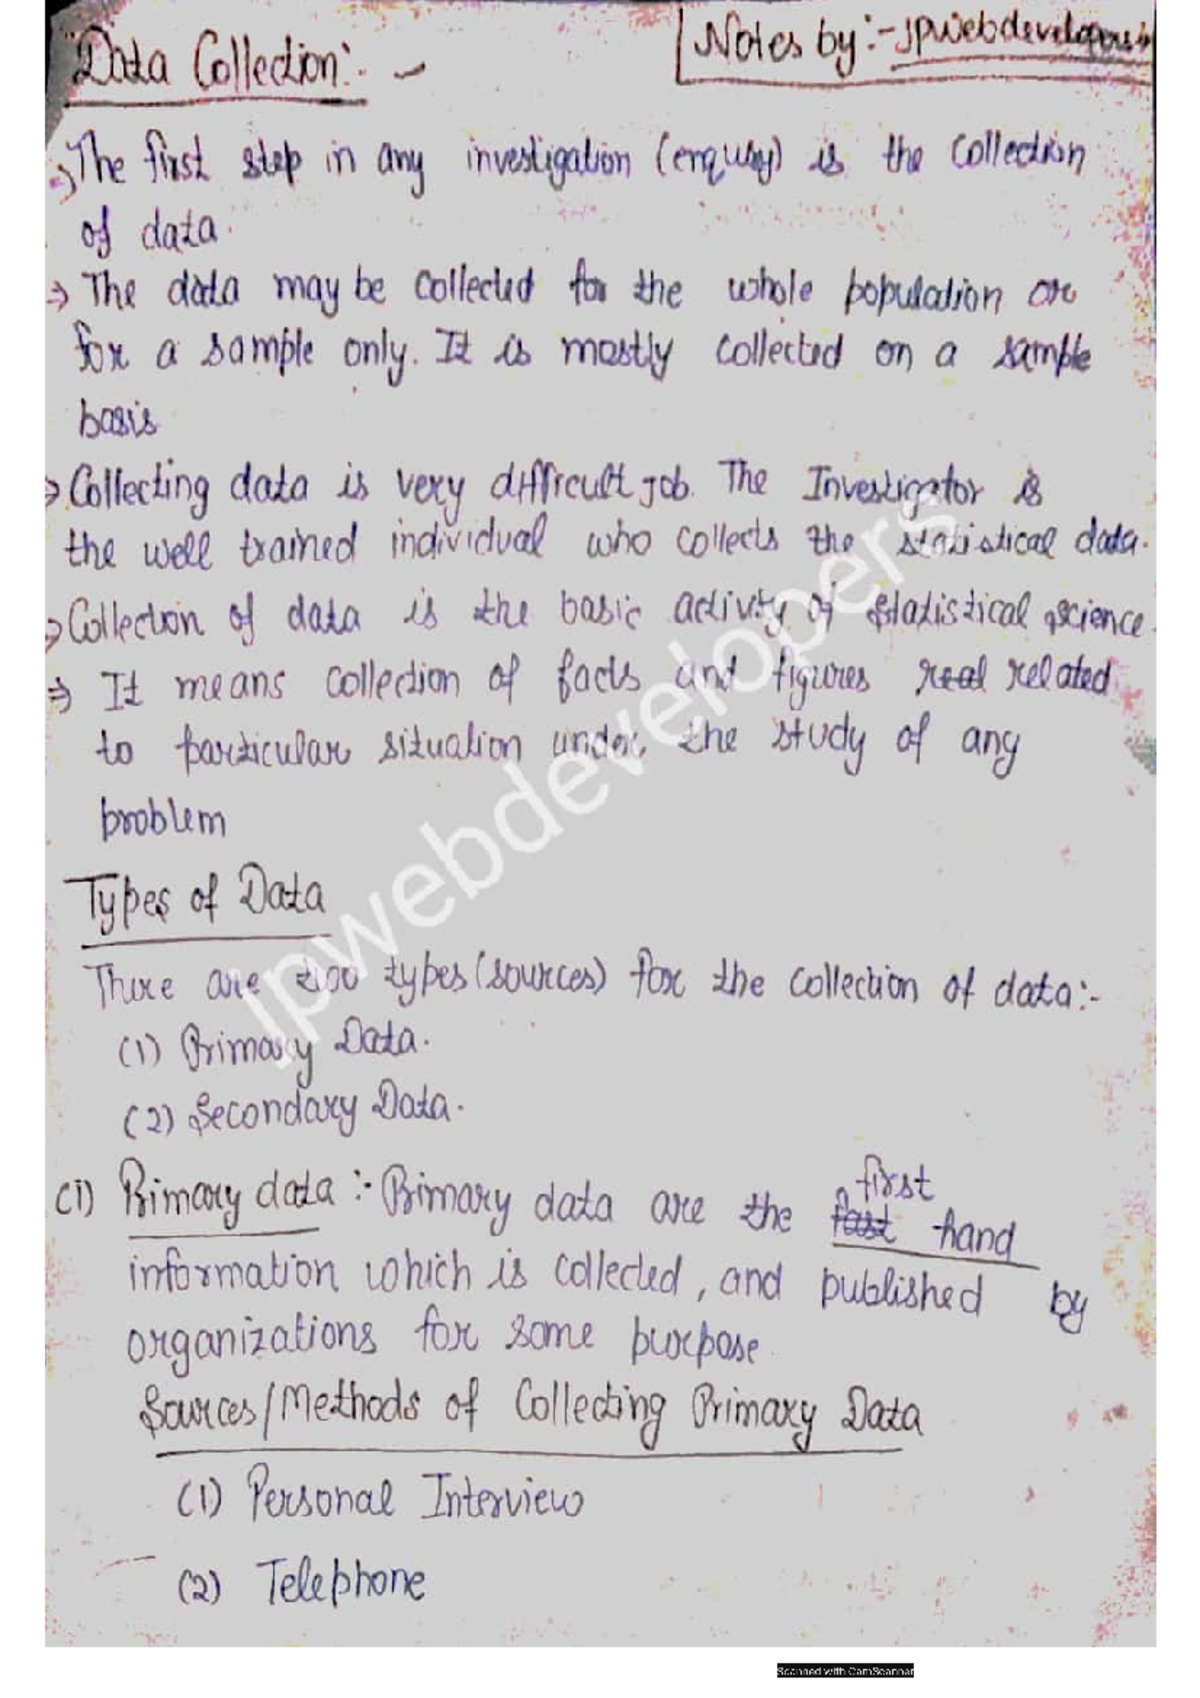 Data Collection:-
Notes by:- jpwebdevelopers
→ The first step in any investigation (enquiry) is the collection
of data.
→ The data may be collected for the whole population or
for a sample only. It is mostly collected on a sample
basis
→ Collecting data is very difficult job. The Investigator is
the well trained individual who collects the statistical data.
→ Collection of data is the basic activity of statistical science.
→ It means collection of facts and figures real related
to particular situation under the study of any
problem
Types of Data
There are two types (sources) for the collection of data:-
(1) Primary Data.
(2) Secondary Data.
(1) Primary data :- Primary data are the first hand
information which is collected, and published by
organizations for some purpose.
Sources/Methods of Collecting Primary Data
(1) Personal Interview
(2) Telephone
jpwebdevelopers
Scanned with CamScanner